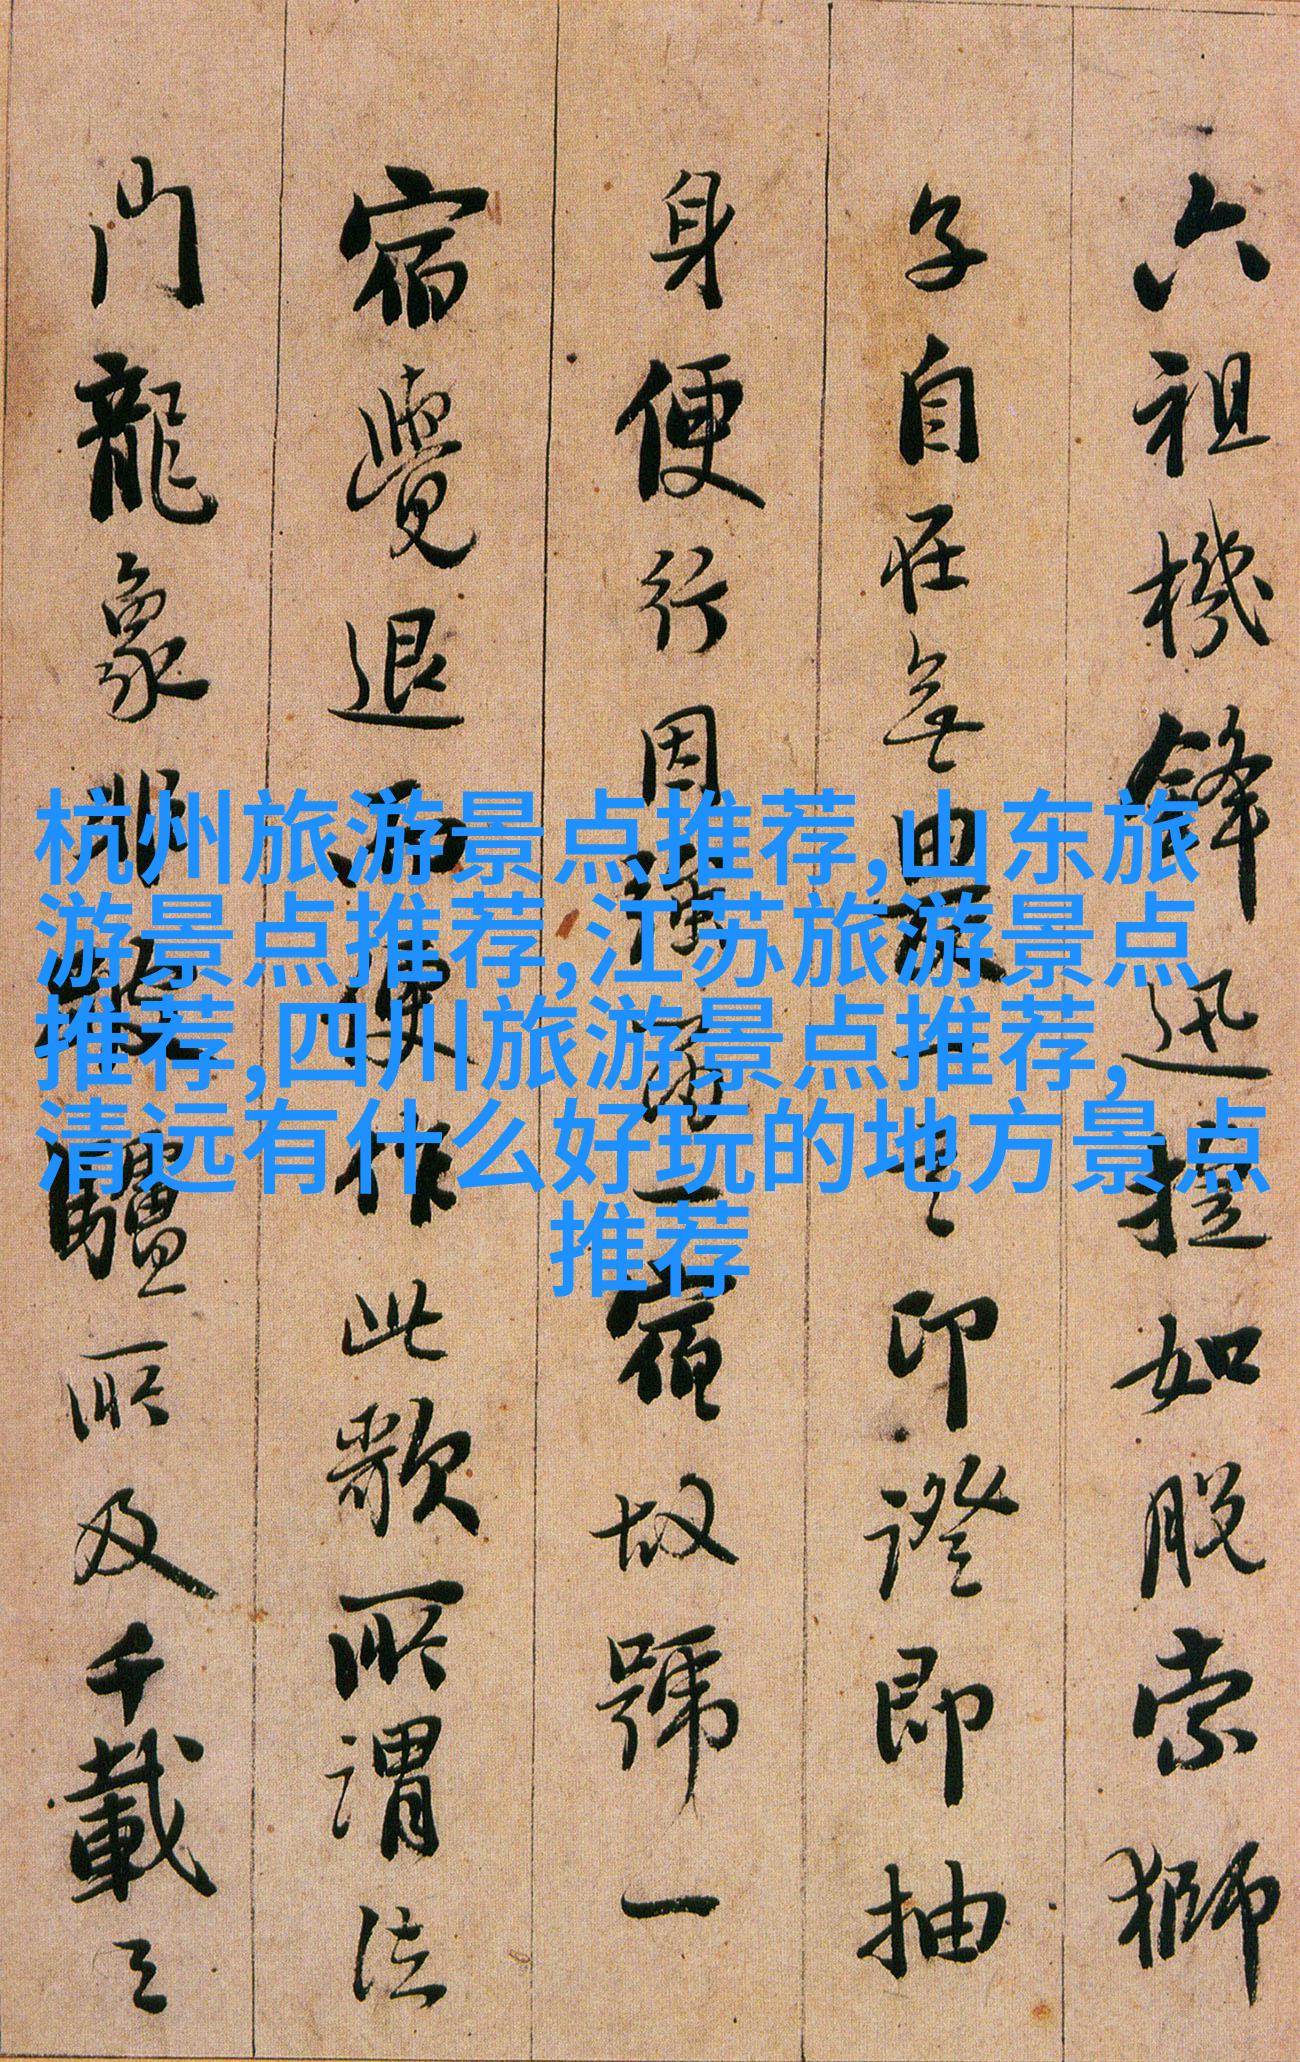 六祖機鋒迅如脫索獅
子自在無畏印證即抽
身便行因強留一宿故號一
宿覺退而便作此歌所謂法
門龍象非驢所及千載之
杭州旅游景点推荐,山东旅
游景点推荐,江苏旅游景点
推荐,四川旅游景点推荐,
清远有什么好玩的地方景点
推荐